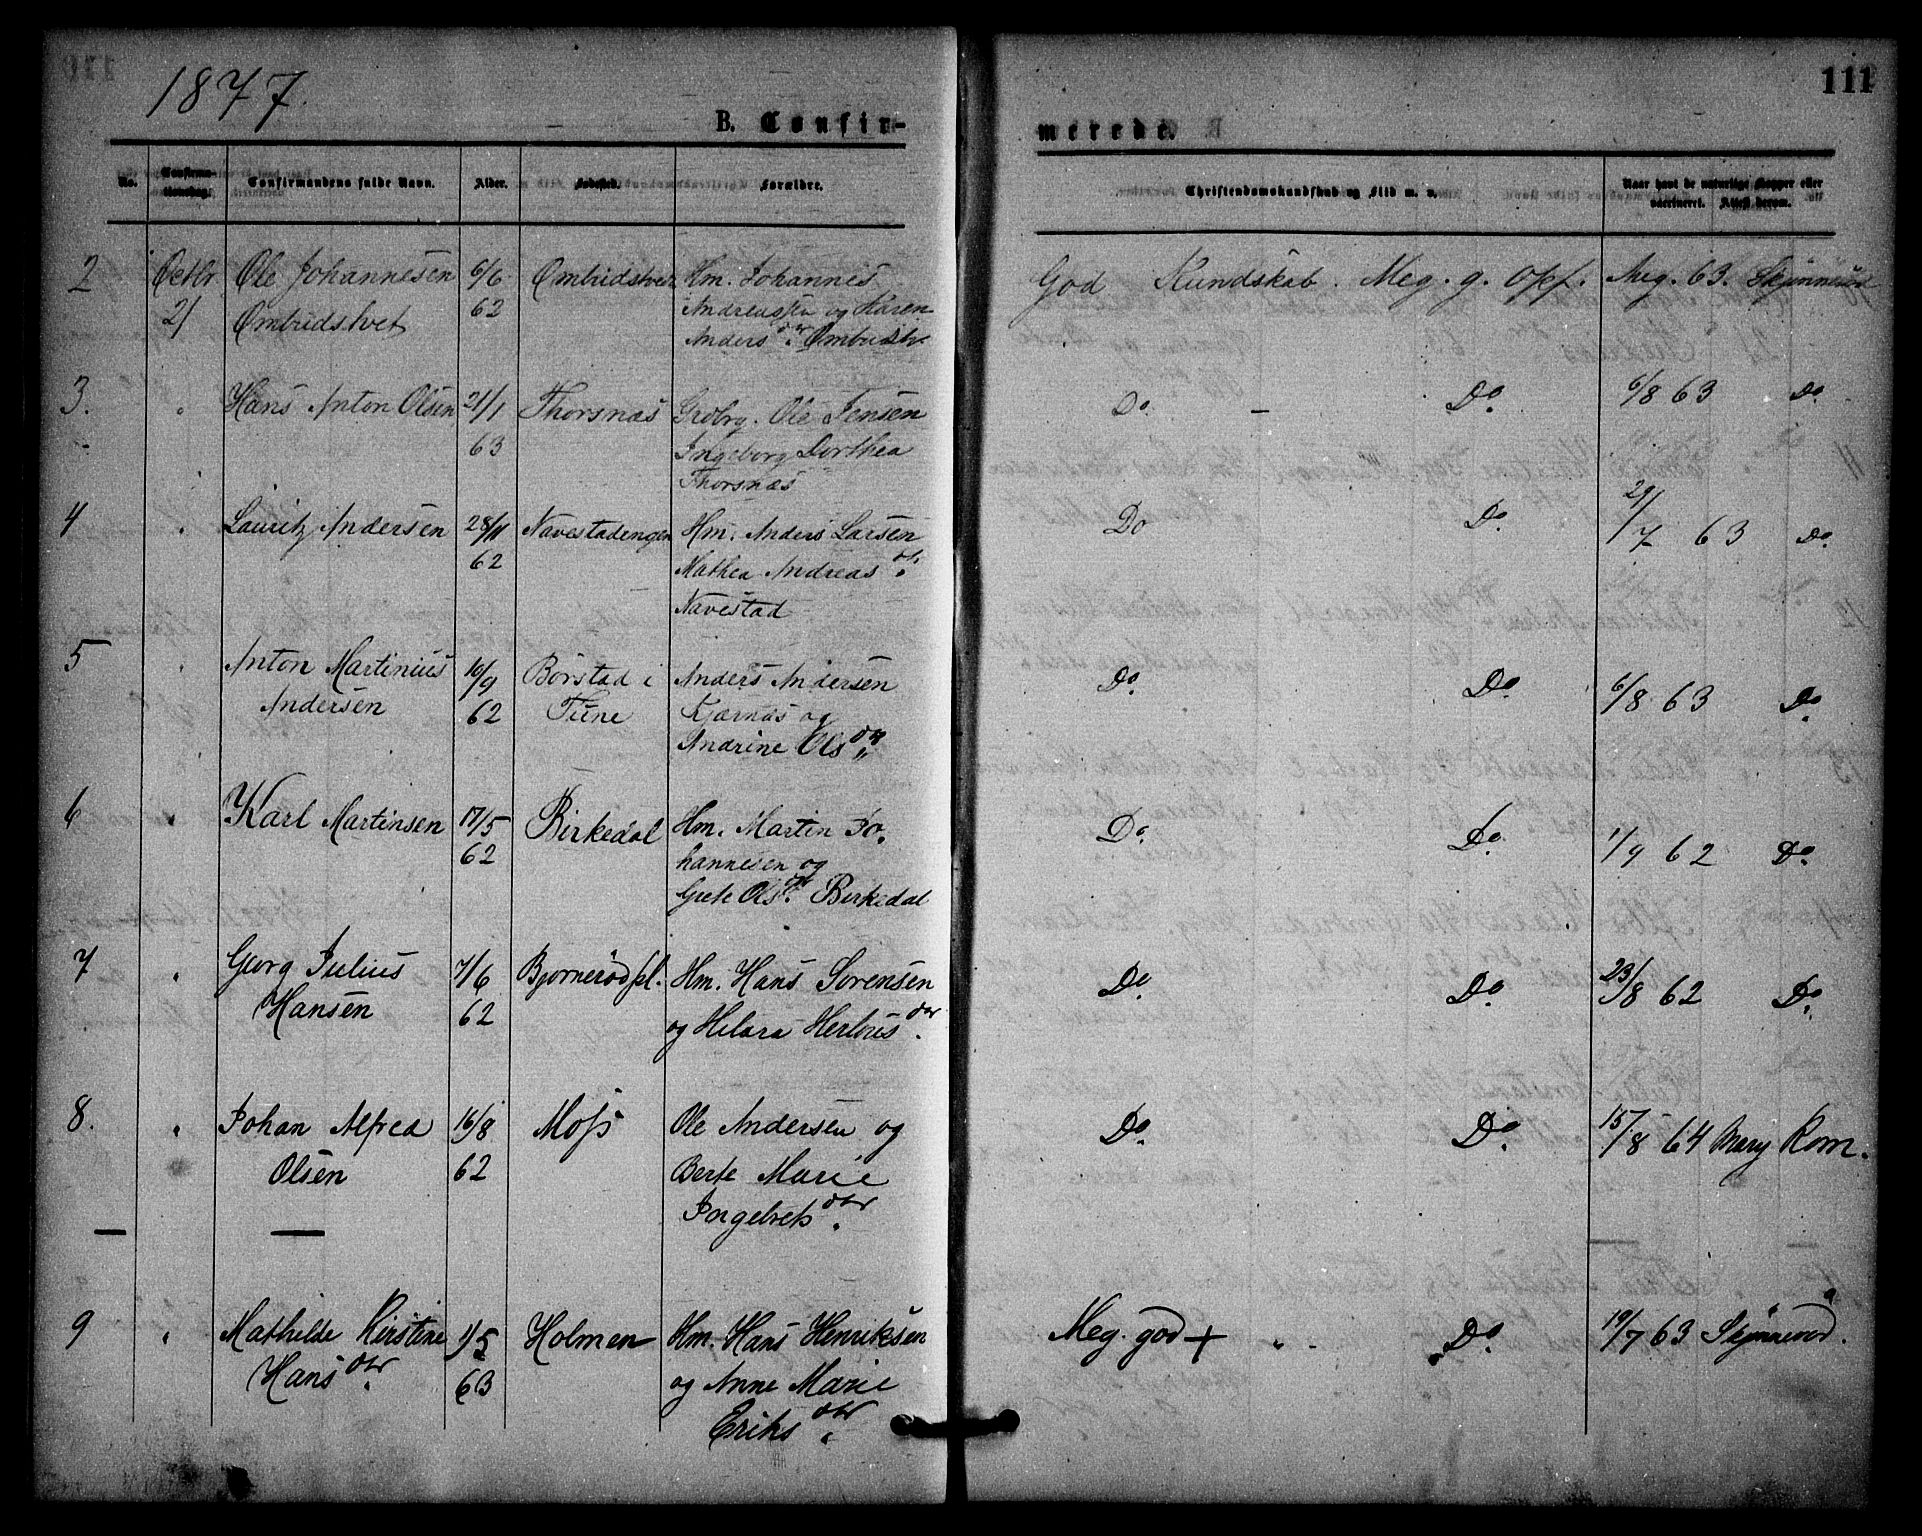 1877.
111
B. Confir-
merede.
No.
Confirma-
tionsdag.
Confirmandens fulde Navn.
Alder.
Fødested.
Forældre.
Christendomskundskab og Flid m. v.
Naar havt de naturlige Kopper eller
vaccineret. Attest derom.
2 Octbr Ole Johannesen 6/6 Ombudstvet Hm. Johannes God Kundskab. Meg. g. Opf. Aug. 63. Skjinnerød
21 Ombudstvet 62 Andreassen og Karen
Anders dr. Ombudstv.
3. " Hans Anton Olsen 21/1 Thorsnæs Grdbrg. Ole Jensen Do. — Do. 6/8 63 Do.
63 Ingeborg Dorthea
Thorsnæs
4 " Lauritz Andersen 28/11 Navestadengen Hm. Anders Larsen Do Do. 29/7 63 Do.
62 Mathea Andreas dr.
Navestad
5 " Anton Martinius 10/9 Børstad i Anders Andersen Do. Do. 6/8 63 Do.
Andersen 62 Tune Kjærnæs og
Andrine Ols dtr
6 " Karl Martinsen 17/5 Birkedal Hm. Martin Jo- Do. Do. 1/9 62 Do.
62 hannesen og
Grete Ols dr. Birkedal
7 " Georg Julius 7/6 Bjørnerødpl. Hm. Hans Sørensen Do. Do. 23/8 62 Do.
Hansen 62 og Helara Herlous dtr.
8. " Johan Alfred 16/8 Moss Ole Andersen og Do. Do. 15/8 64 Mary Rom.
Olsen 62 Berte Marie
Ingebrets dtr.
9 " Mathilde Kirstine 1/5 Holmen Hm. Hans Henriksen Meg. god + " Do. 19/7 63 Skjinnerød.
Hans dtr. 63 og Anne Marie
Eriks dtr.